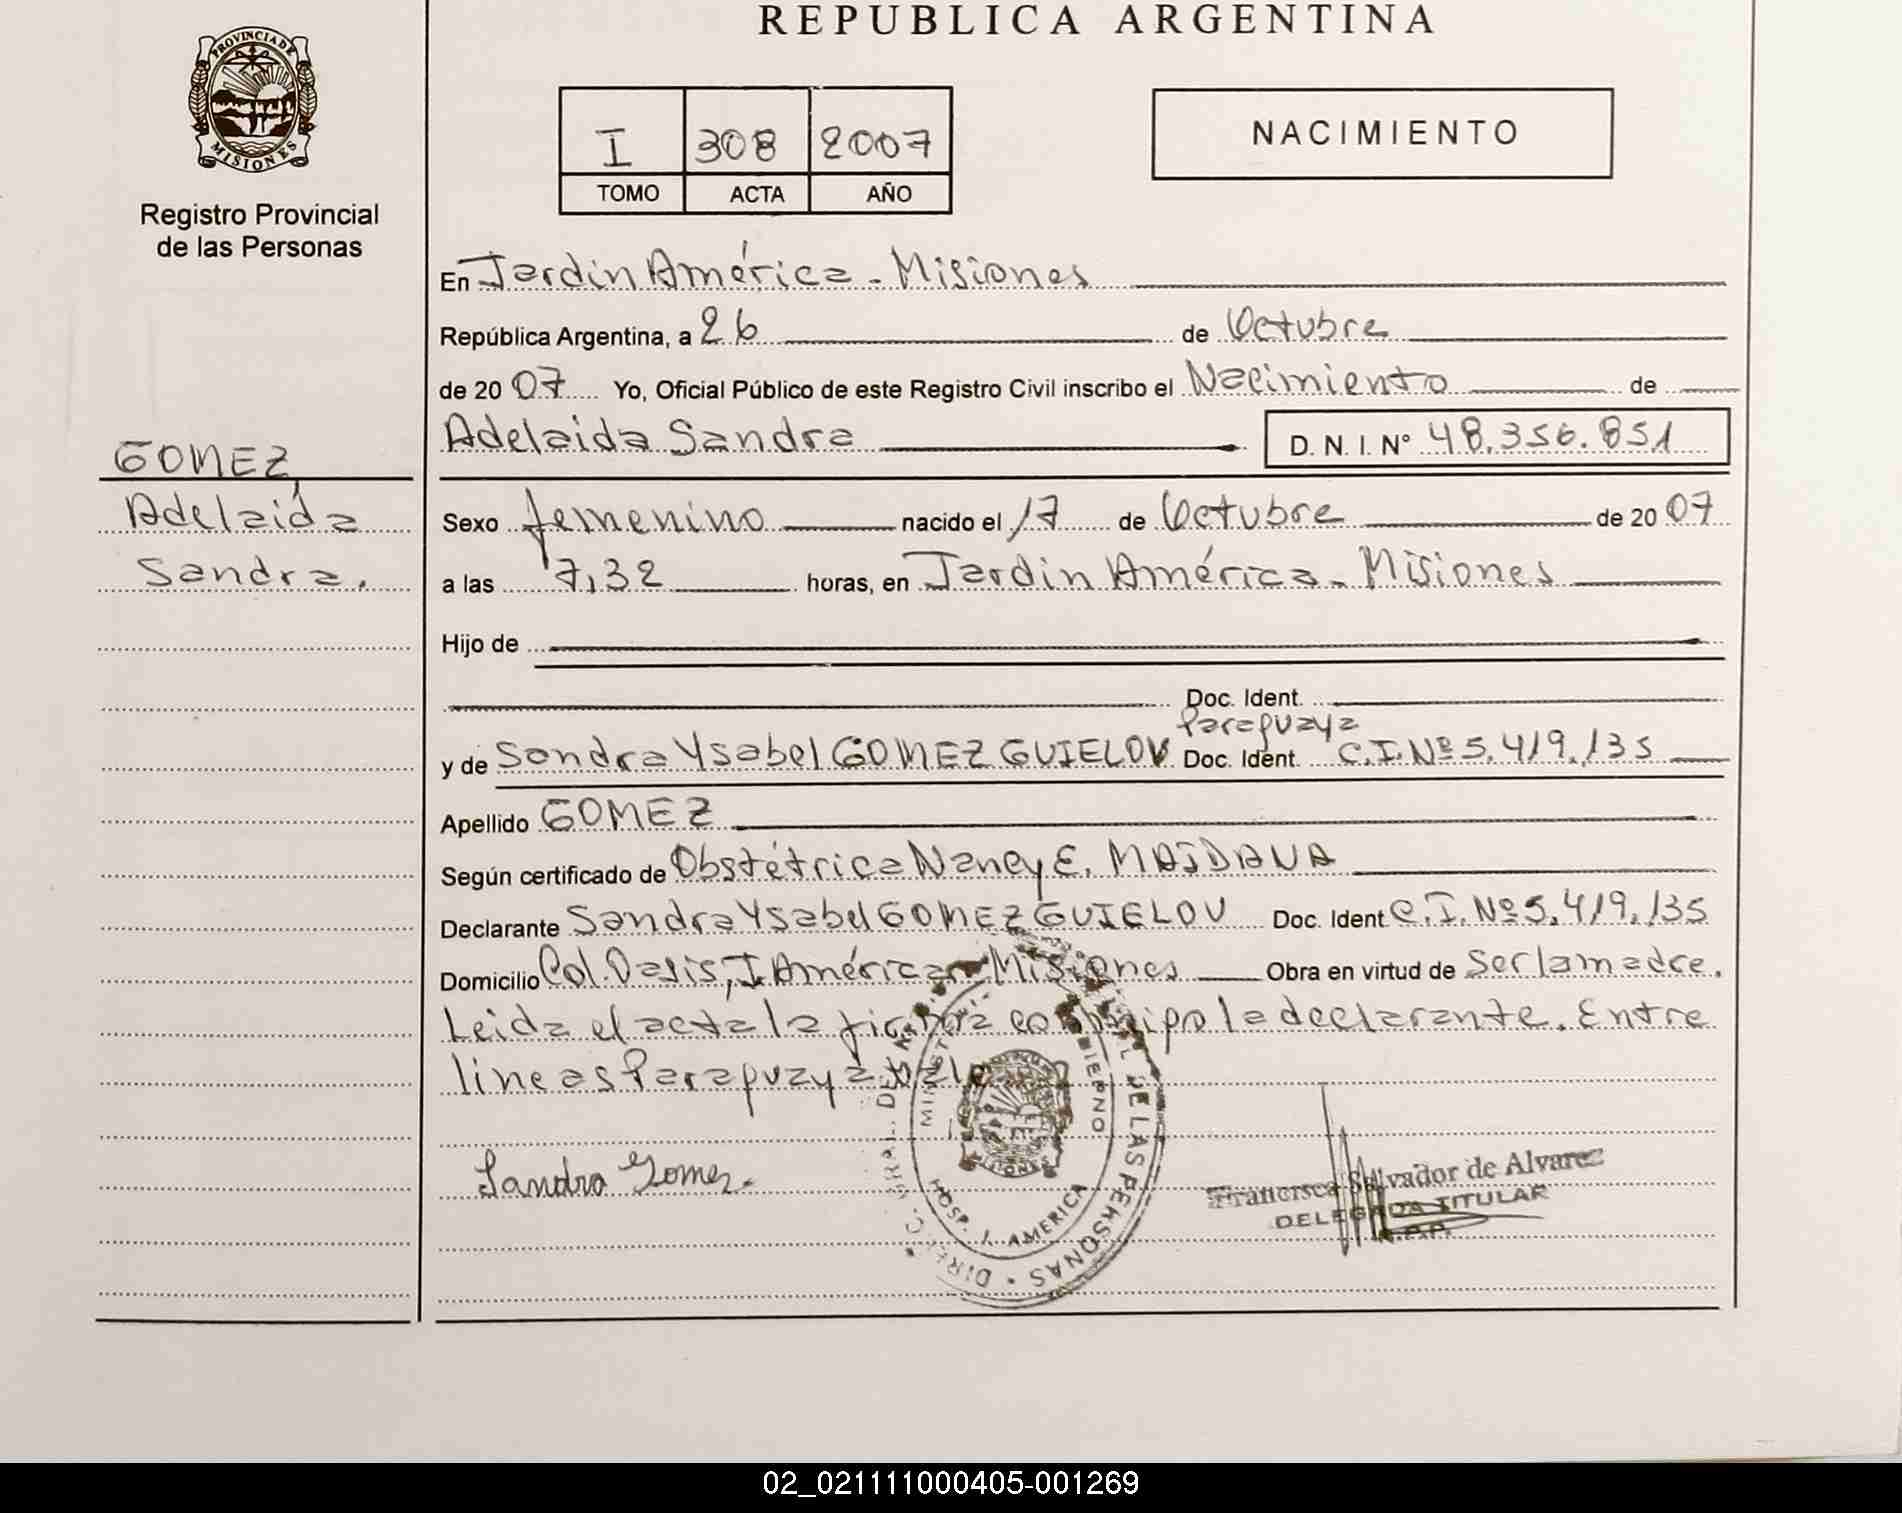 REPUBLICA ARGENTINA
PROVINCIA DE
MISIONES
Registro Provincial
de las Personas
I 308 2007
TOMO ACTA AÑO
NACIMIENTO
En Jardin América - Misiones
República Argentina, a 26 de Octubre
de 20 07 Yo, Oficial Público de este Registro Civil inscribo el Nacimiento de
Adelaida Sandra D. N. I. N° 48.356.851
GOMEZ
Adelaida
Sandra.
Sexo femenino nacido el 17 de Octubre de 20 07
a las 7,32 horas, en Jardin América - Misiones
Hijo de
Doc. Ident.
Paraguaya
y de Sandra Ysabel GOMEZ GUIELOV Doc. Ident. C.I. Nº 5.419.135
Apellido GOMEZ
Según certificado de Obstétrica Nancy E. MAIDANA
Declarante Sandra Ysabel GOMEZ GUIELOV Doc. Ident C.I. Nº 5.419.135
Domicilio Col. Oasis, J. América - Misiones Obra en virtud de Ser la madre.
Leida el acta la firma conmigo la declarante. Entre
lineas Paraguaya vale
Sandra Gomez.
HOSP. J. AMERICA
DE LAS PERSONAS
MISIONES
Francisca Salvador de Alvarez
DELEGADA TITULAR
R.P.P.
02_021111000405-001269